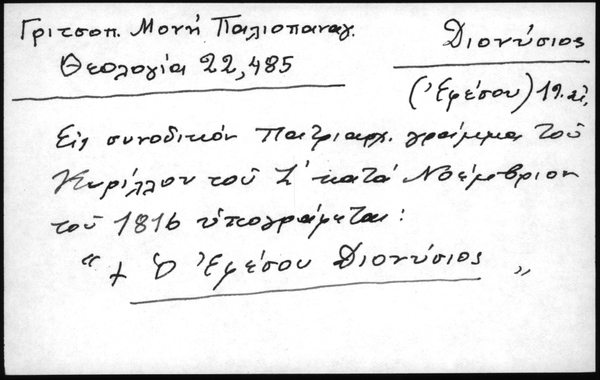 Γριτσοπ. Μονή Παλιοπαναγ.
Θεολογία 22,485
Διονύσιος
(Ἐφέσου) 19. αἰ.
Εἰς συνοδικόν Πατριαρχ. γράμμα τοῦ
Κυρίλλου τοῦ Ϛ΄ κατά Νοέμβριον
τοῦ 1816 ὑπογράφεται:
“ + Ὁ Ἐφέσου Διονύσιος „